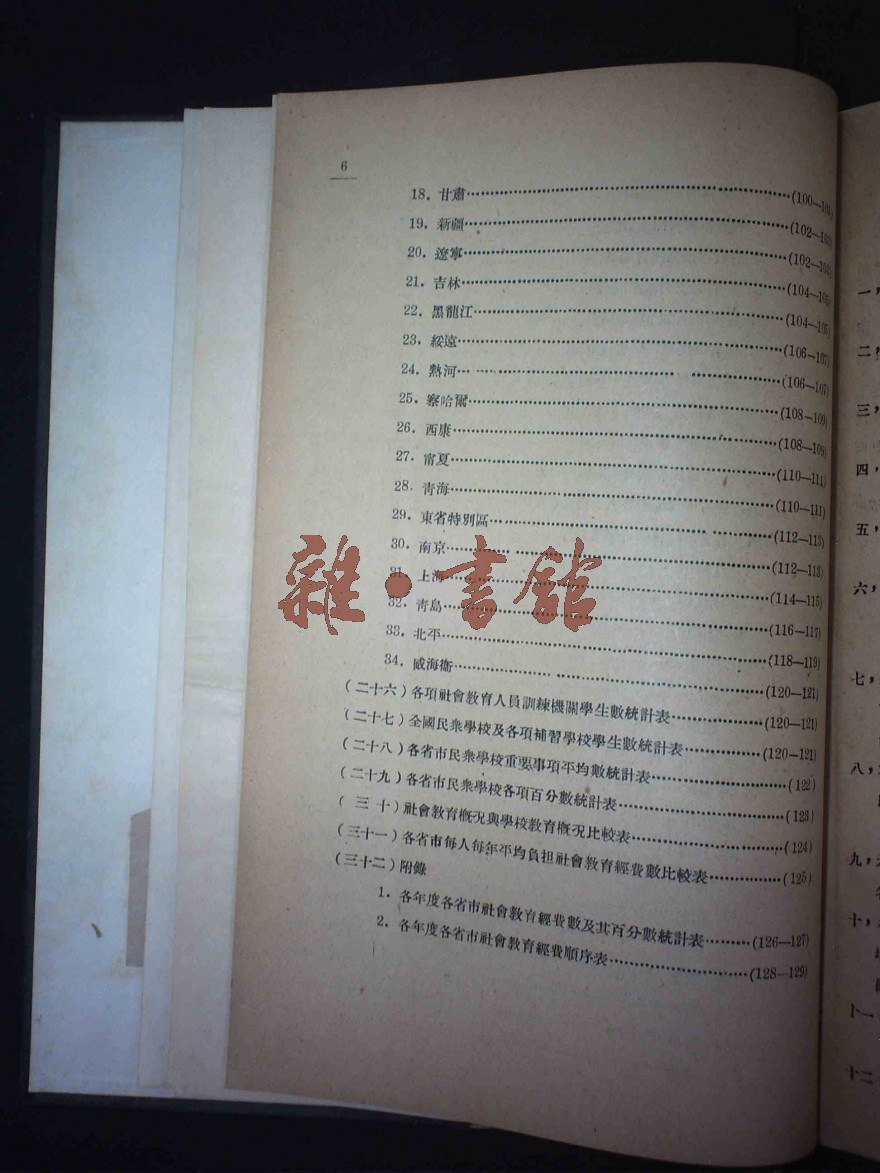 6
18. 甘肅……(100—101)
19. 新疆……(102—103)
20. 遼寧……(102—103)
21. 吉林……(104—105)
22. 黑龍江……(104—105)
23. 綏遠……(106—107)
24. 熱河……(106—107)
25. 察哈爾……(108—109)
26. 西康……(108—109)
27. 甯夏……(110—111)
28. 靑海……(110—111)
29. 東省特別區……(112—113)
30. 南京……(112—113)
31. 上海……(114—115)
32. 靑島……(116—117)
33. 北平……(118—119)
34. 威海衞……(120—121)
(二十六)各項社會敎育人員訓練機關學生數統計表……(120—121)
(二十七)全國民衆學校及各項補習學校學生數統計表……(120—121)
(二十八)各省市民衆學校重要事項平均數統計表……(122)
(二十九)各省市民衆學校各項百分數統計表……(123)
(三十)社會敎育槪況與學校敎育槪況比較表……(124)
(三十一)各省市每人每年平均負担社會敎育經費數比較表……(125)
(三十二)附錄
1. 各年度各省市社會敎育經費數及其百分數統計表……(126—127)
2. 各年度各省市社會敎育經費順序表……(128—129)
雜·書館
一,
二
三,
四,
五,
六,
七,
八,
九,
十,
十一
十二